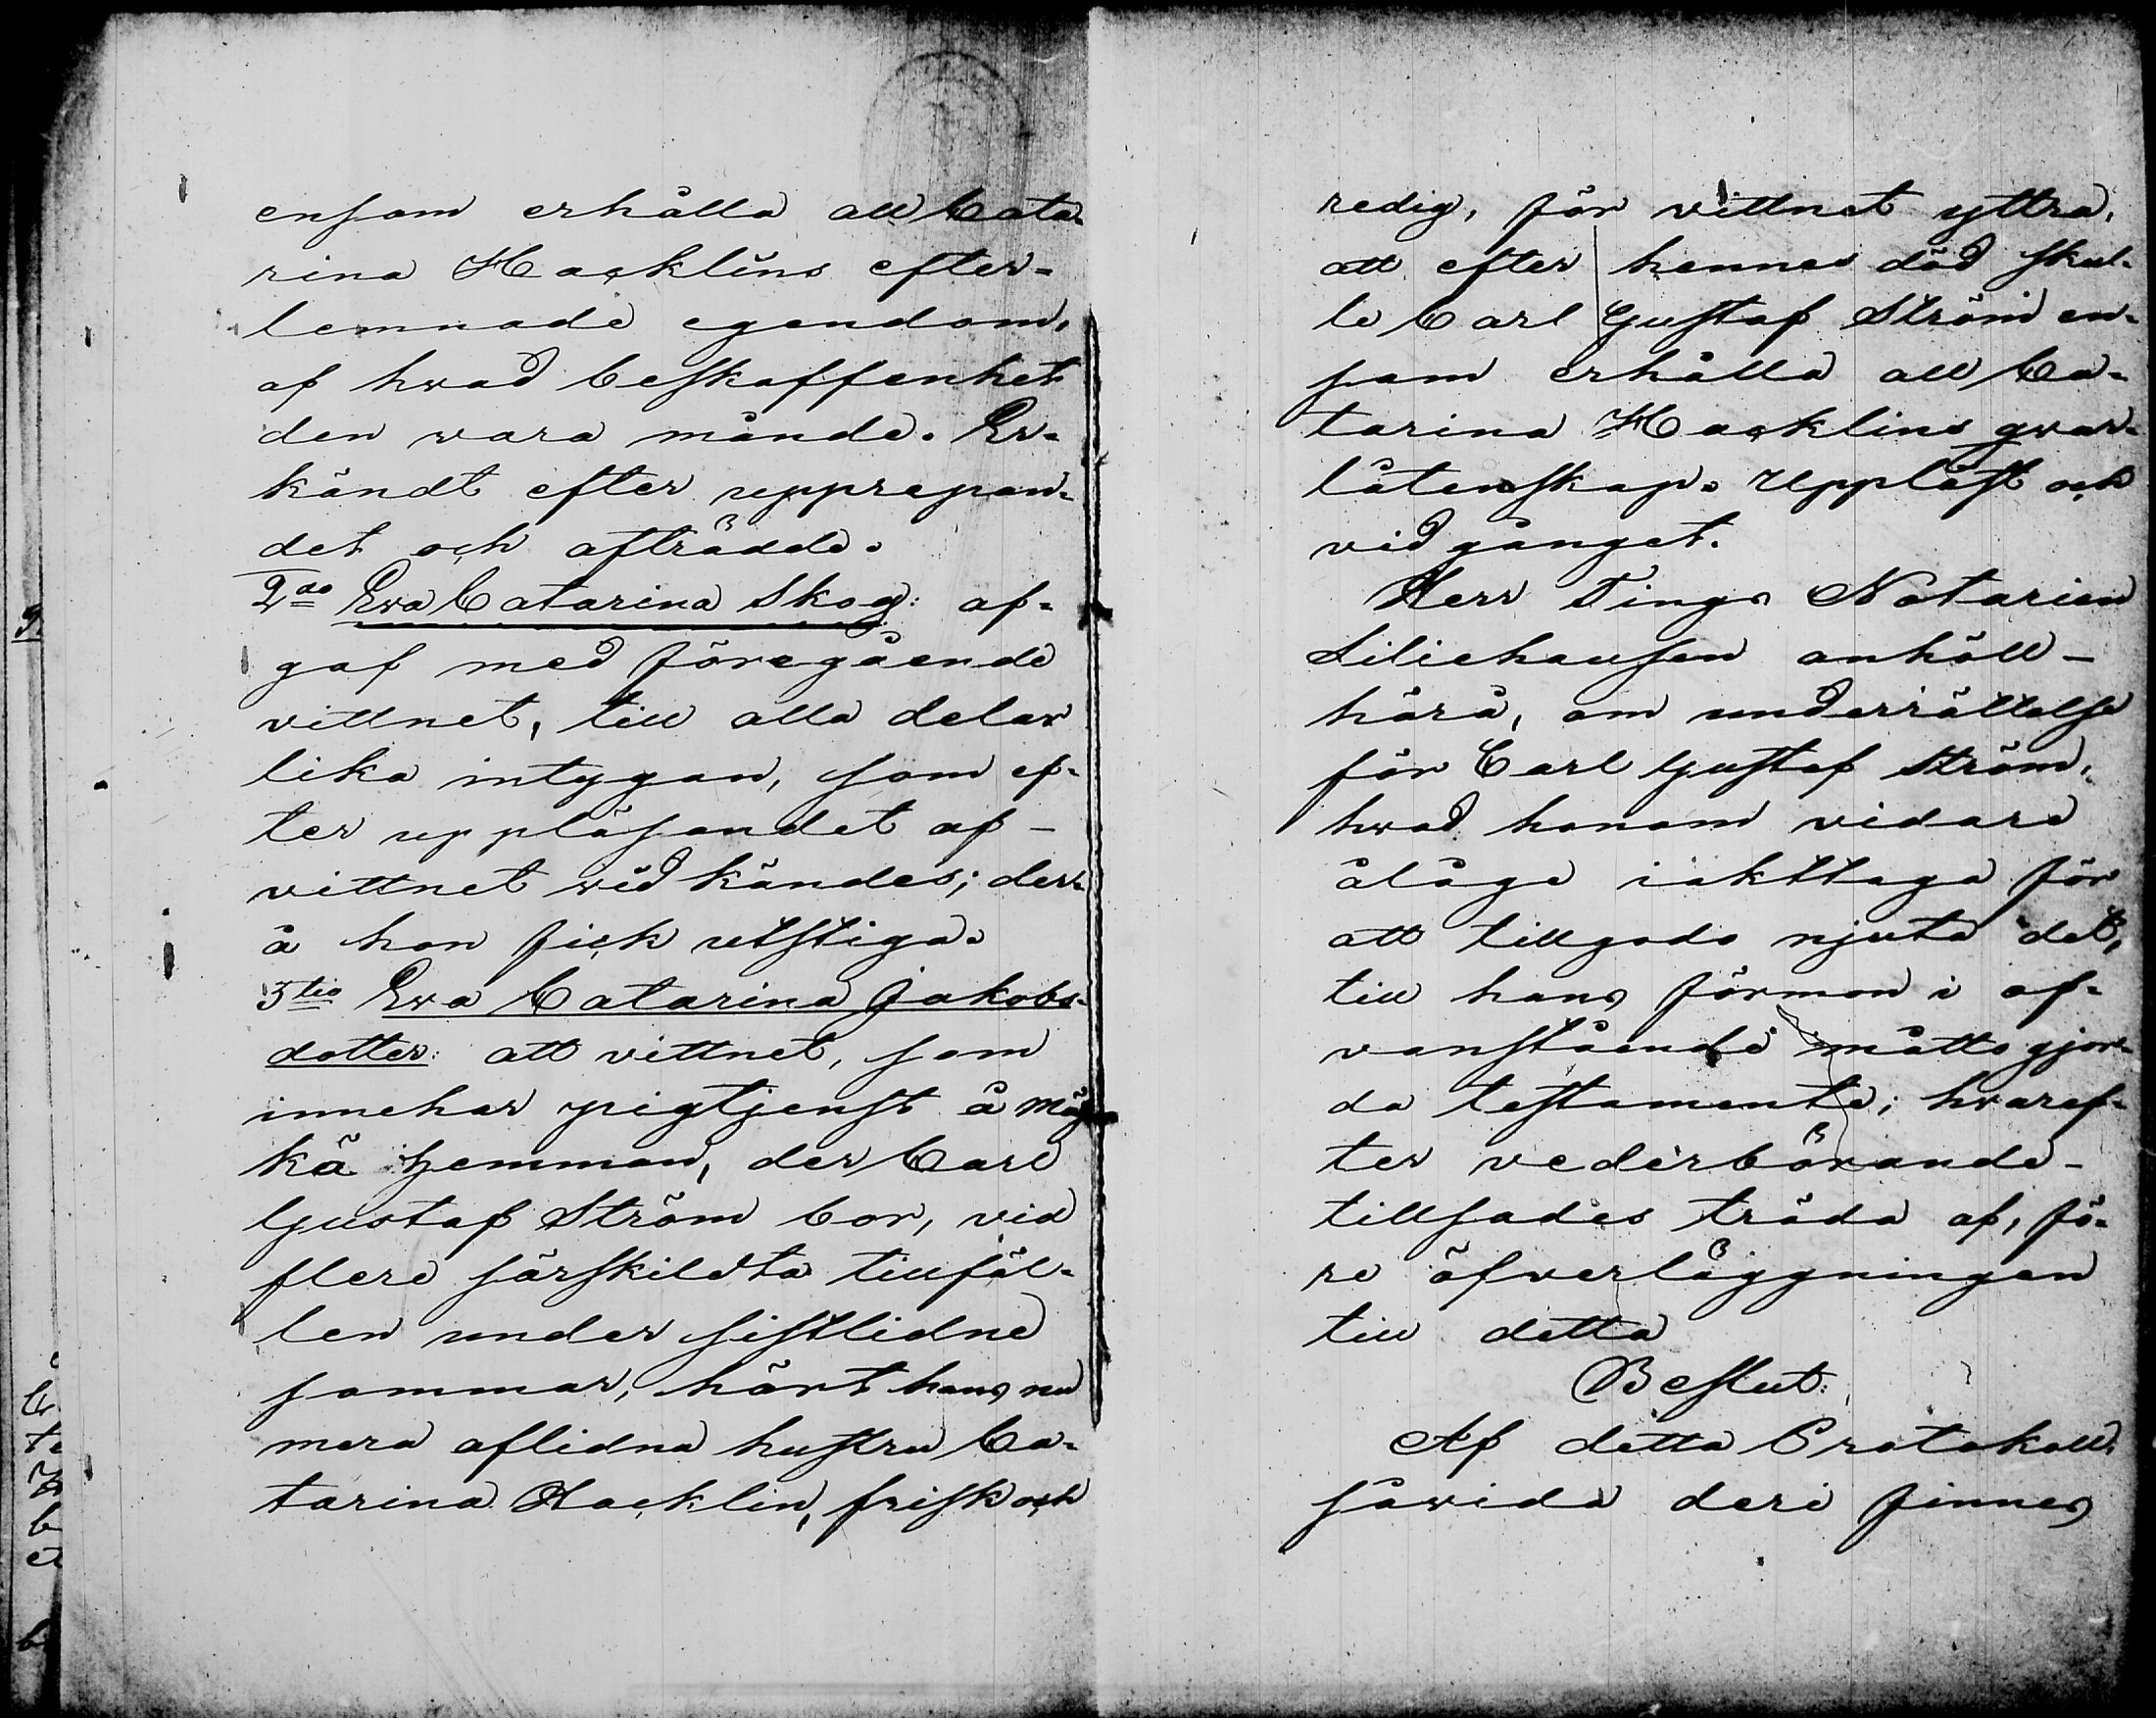 ensam erhålla all Cata-
rina Hacklins efter-
lemnade egendom,
af hvad beskaffenhet
den vara månde. Er-
kändt efter upprepan-
det och afträdde.
2do Eva Catarina Skog: af-
gaf med föregående
vittnet, till alla delar
lika intygan, som ef-
ter uppläsandet af-
vittnet vidkändes; der-
å hon fick utstiga.
3tio Eva Catarina Jakobs-
dotter: att vittnet, som
innehar pigtjenst å
kä hemman, der Carl
Gustaf Ström bor, vid
flere särskildta tillfäl-
len under sistlidne
sommar, hört hans nu
mera aflidna hustru Ca-
tarina Hacklin, frisk och
redig, för vittnet yttra,
att efter hennes död skul-
le Carl Gustaf Ström en-
sam erhålla all Ca-
tarina Hacklins qvar-
låtenskap. Uppläst och
vidgånget.
Herr Tings Notarien
Liliehausen anhöll-
härå, om underrättelse
för Carl Gustaf Ström,
hvad honom vidare
åläge iakttaga för
att tillgodo njuta det,
till hans förmon i of-
vanstående måtto gjor-
da testamente; hvaref-
ter vederbörande-
tillsades träda af, fö-
re öfverläggningen
till detta
Beslut:
Af detta Protokoll,
såvida deri finnes